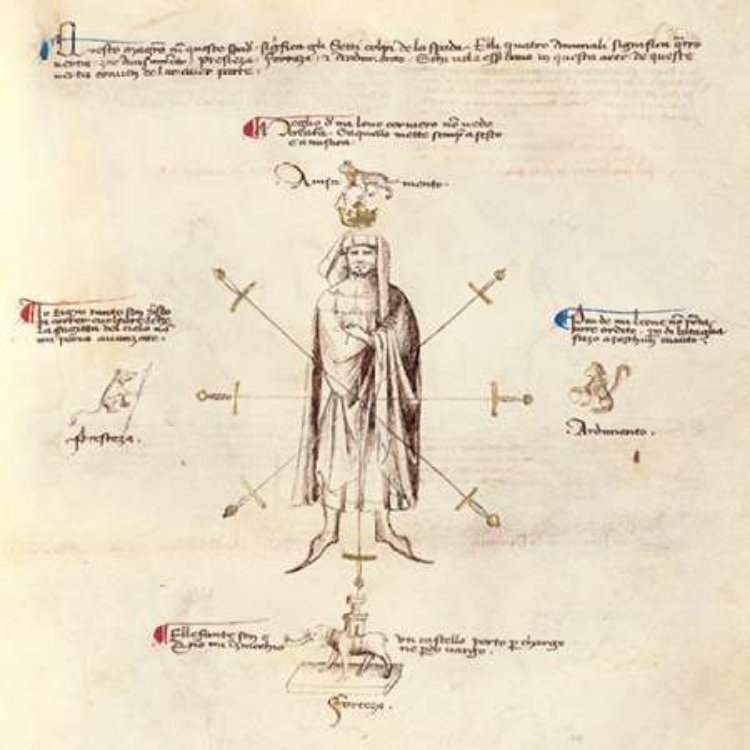 Questo magistro cum queste spade significa gli setti colpi de la spada. E lli quatro animali significa qtro
vertu zoe avisamento. presteza. forteza. & ardimento. E chi vole esser bono in questa arte de queste
vertu conven de lor aver parte.
Meglio d mi lovo cerviero no vede
creatura. E aquello mette semp a sesto
e a misura.
Avisa mento.
Io tigro tanto son presto
a correr e voltare che
la sagitta del cielo no
mi poria avanzare.
Piu de mi leone no porta
core ardito. di bataglia
fazo a zaschun invito.
Presteza.
Ardimento.
Ellefante son e un castello porto p chargo
E no mi inzenochio ne pdo vargo.
Forteza.